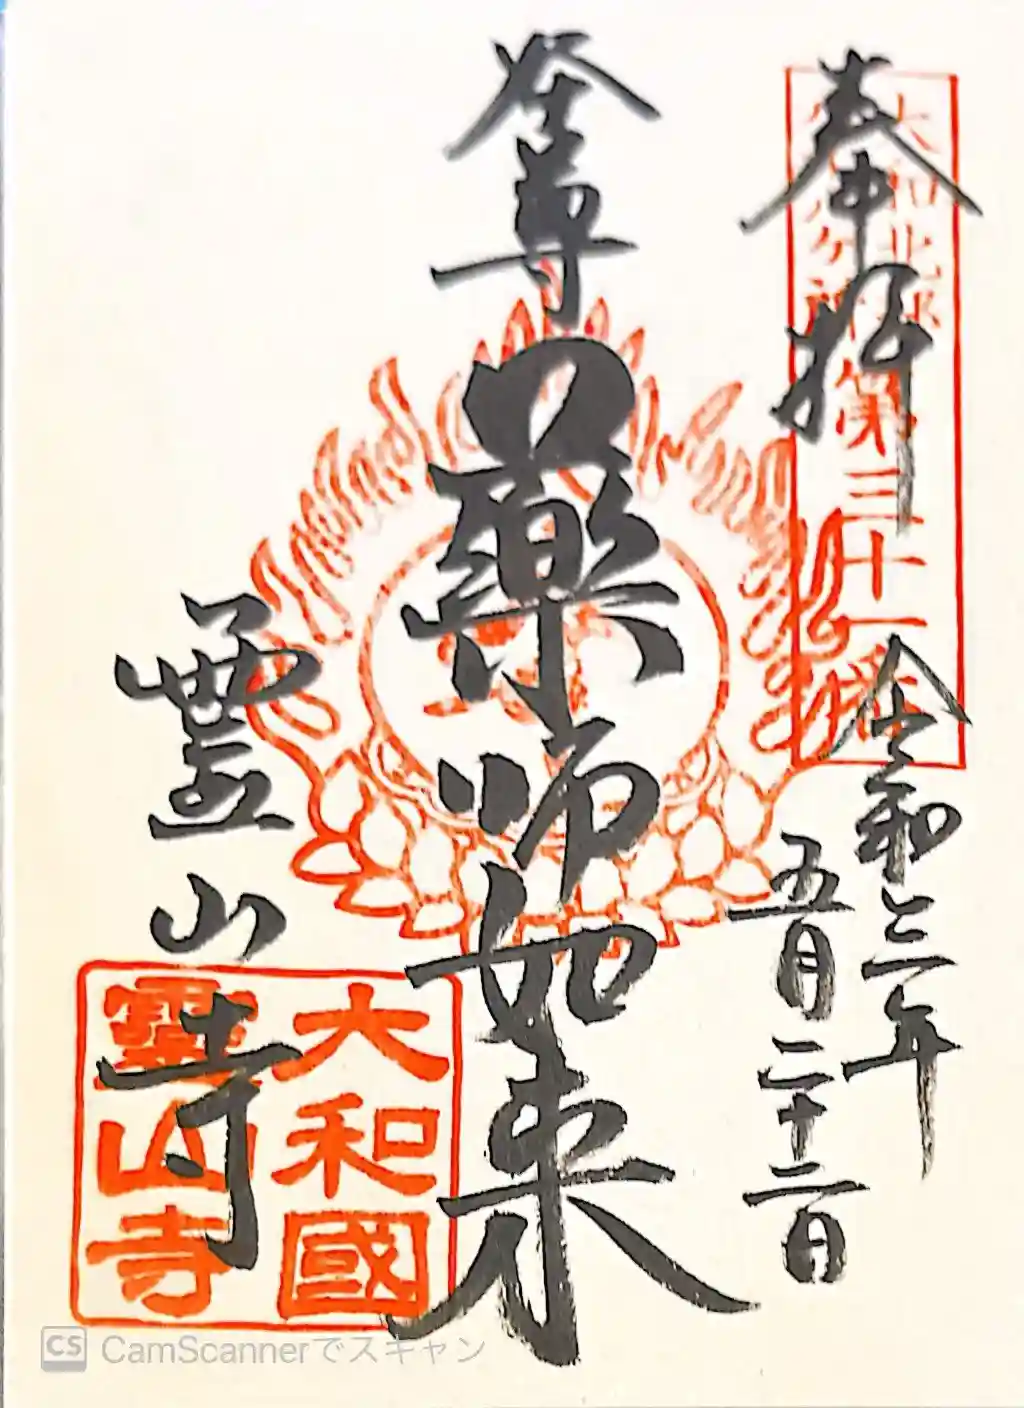 奉拝
大和北部
八十八ヶ所
第三十一番
令和二年
五月二十二日
釜尊
薬師如来
霊山寺
大和國
霊山寺
CamScannerでスキャン